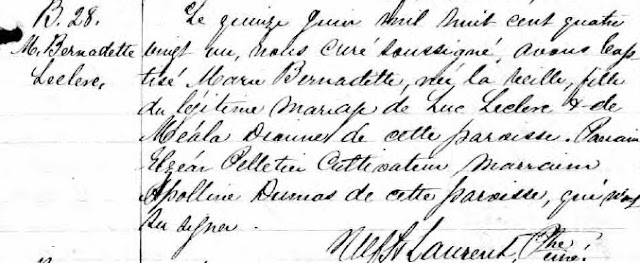 B. 28.
M. Bernadette
Leclerc,
Le quinze Juin mil huit cent quatre
vingt un, nous curé soussigné, avons bap
tisé Marie Bernadette, née la veille, fille
du légitime mariage de Luc Leclerc & de
Méala Dionne de cette paroisse. Parrain
Elzéar Pelletier Cultivateur marraine
Apolline Dumas de cette paroisse, qui n'ont
su signer.
Laurent, Ptre
curé.